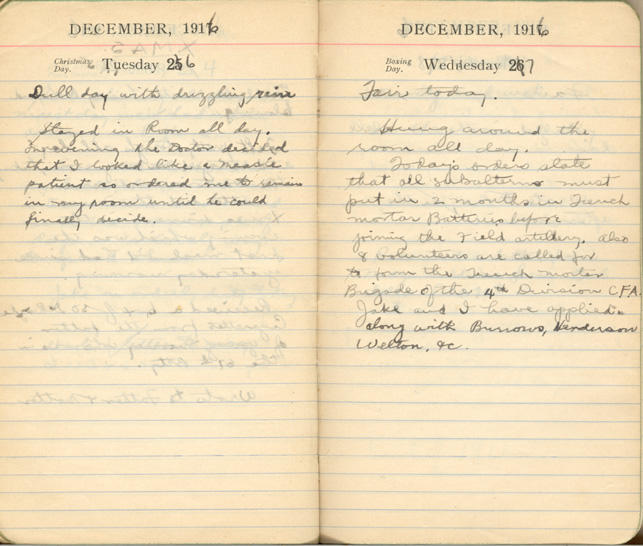 DECEMBER, 1916
Christmas Day. Tuesday 26
Dull day with drizzling rain
Stayed in Room all day.
In evening the Doctor decided
that I looked like a measle
patient so ordered me to remain
in my room until he could
finally decide.
DECEMBER, 1916
Boxing Day. Wednesday 27
Fair today.
Hung around the
room all day.
Today's orders state
that all subalterns must
put in 2 months in Trench
mortar Batteries before
joining the Field artillery. Also
8 Volunteers are called for
to form the Trench mortar
Brigade of the 4th Division C.F.A.
Jake and I have applied
along with Burrows, Henderson
Welton, &c.